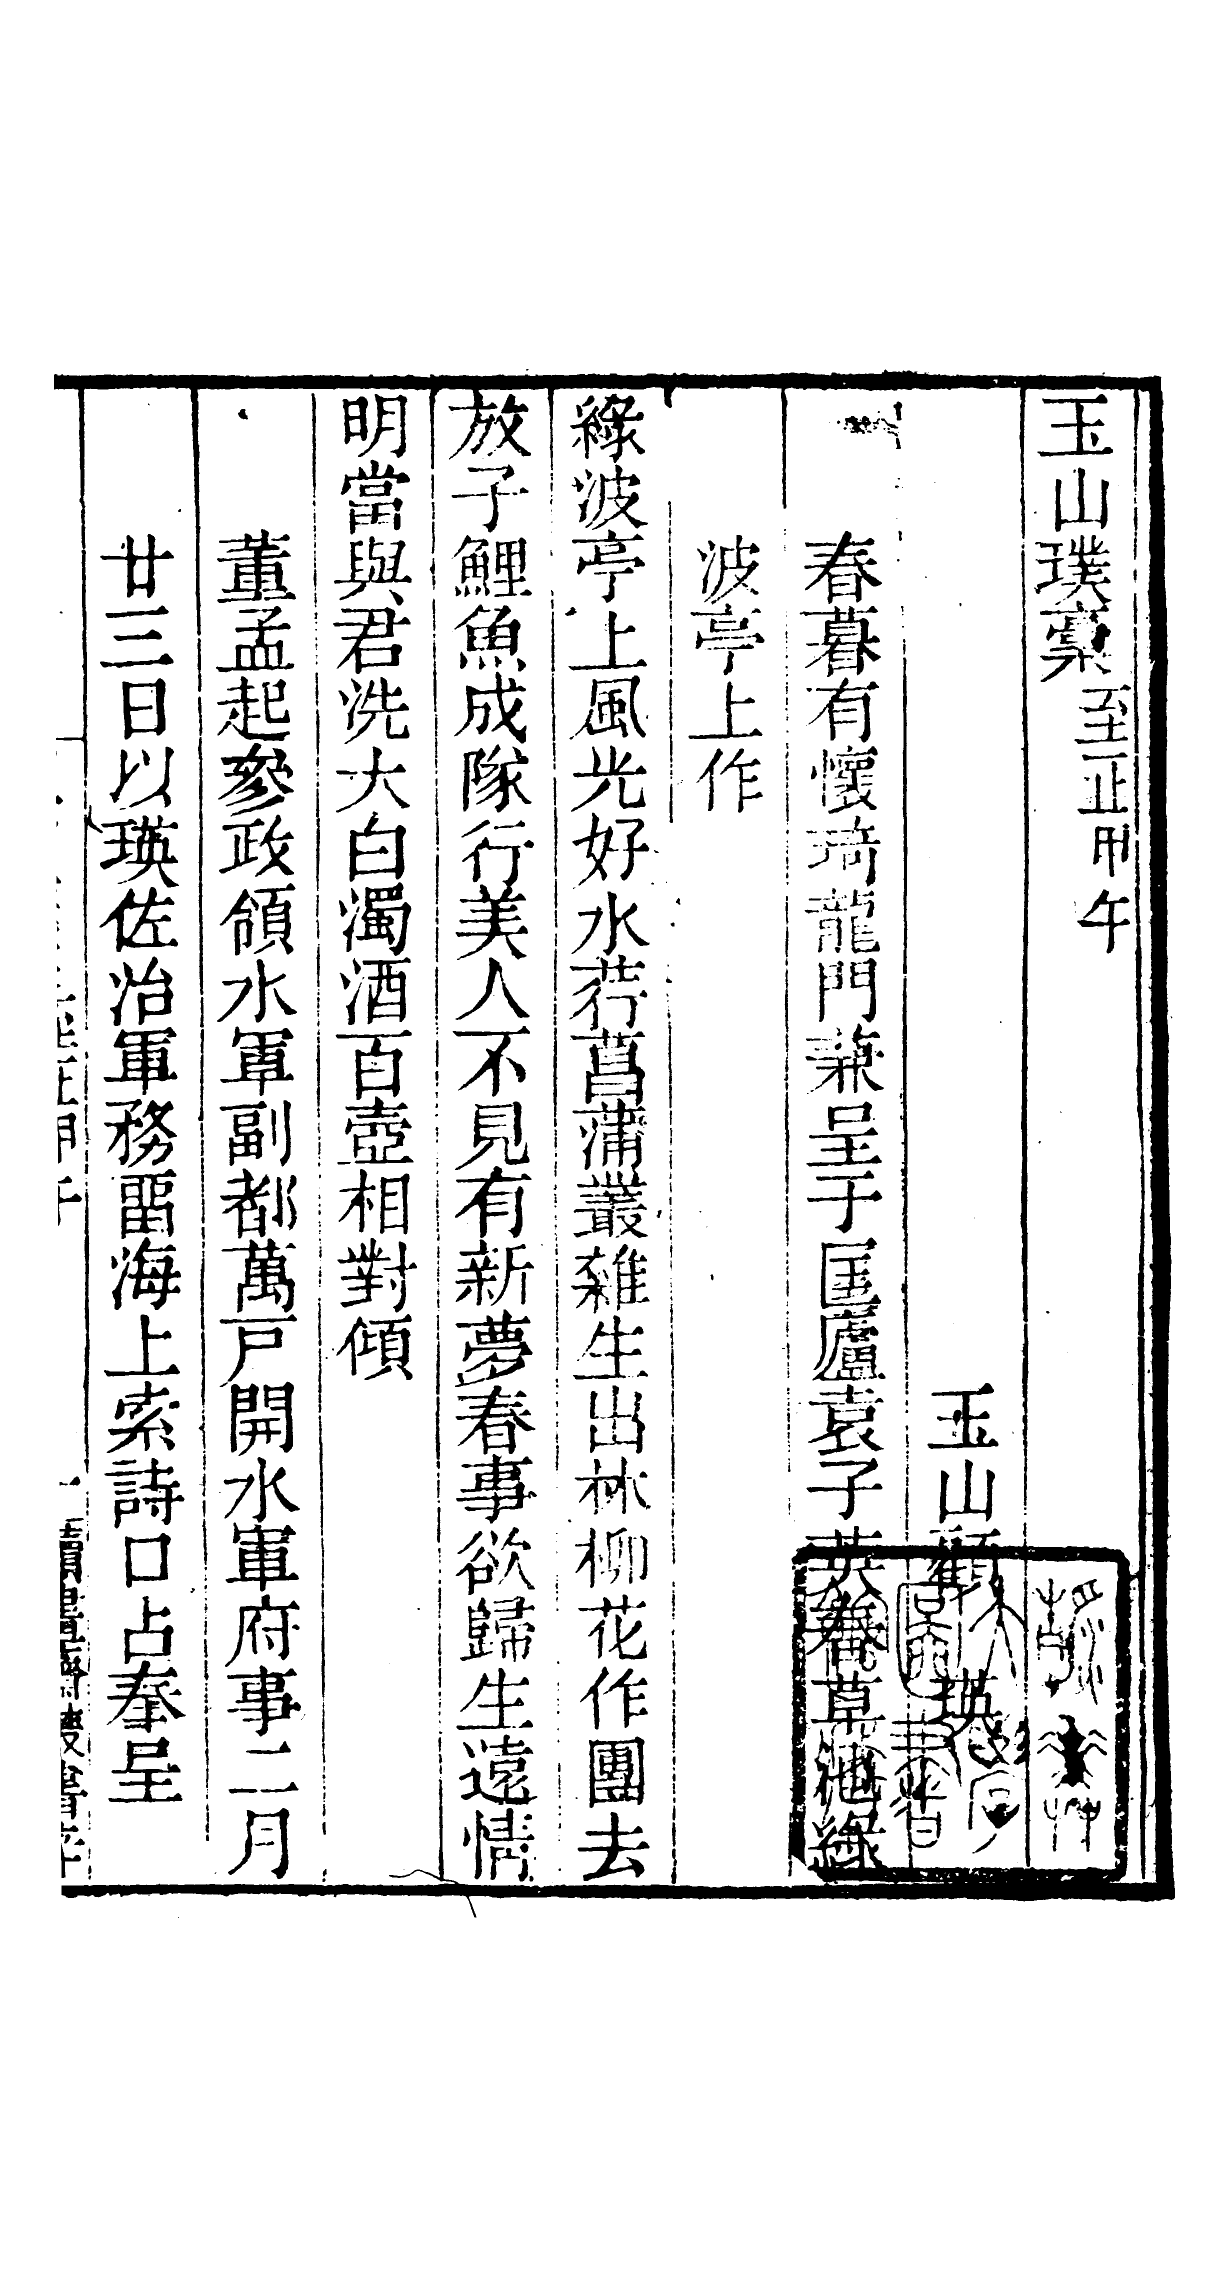 玉山璞稾至正甲午
玉山顧瑛
春暮有懷琦龍門兼呈于匡廬袁子英春草池綠
波亭上作
綠波亭上風光好水荇菖蒲叢雜生出林柳花作團去
放子鯉魚成隊行美人不見有新夢春事欲歸生遠情
明當與君洗大白濁酒百壺相對傾
董孟起參政領水軍副都萬戸開水軍府事二月
廿三日以瑛佐治軍務畱海上索詩口占奉呈